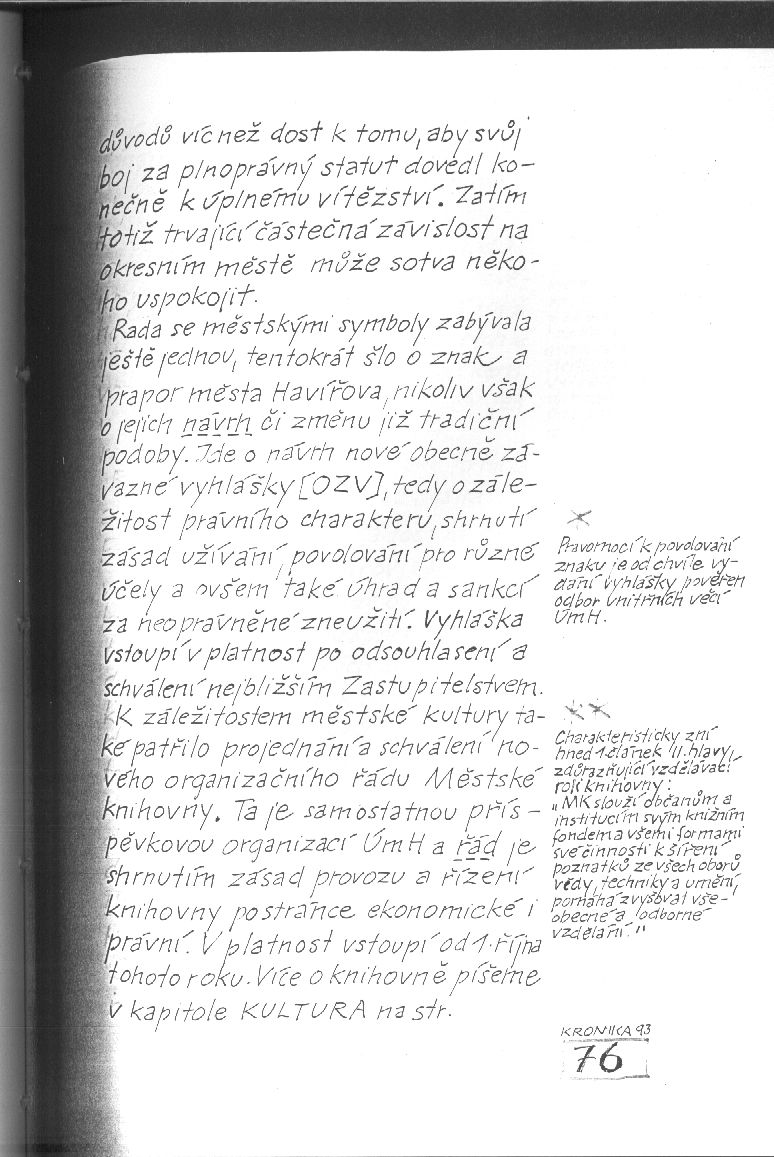 důvodů víc než dost k tomu, aby svůj
boj za plnoprávný statut dovedl ko-
nečně k úplnému vítězství. Zatím
totiž trvající částečná závislost na
okresním městě může sotva něko-
ho uspokojit.
Rada se městskými symboly zabývala
ještě jednou, tentokrát šlo o znak a
prapor města Havířova, nikoliv však
o jejich návrh či změnu již tradiční
podoby. Jde o návrh nové obecně zá-
vazné vyhlášky [OZV], tedy o zále-
žitost právního charakteru, shrnutí
zásad užívání, povolování pro různé
účely a ovšem také úhrad a sankcí
za neoprávněné zneužití. Vyhláška
vstoupí v platnost po odsouhlasení a
schválení nejbližším Zastupitelstvem.
K záležitostem městské kultury ta-
ké patřilo projednání a schválení no-
vého organizačního řádu Městské
knihovny. Ta je samostatnou přís-
pěvkovou organizací ÚmH a řád je
shrnutím zásad provozu a řízení
knihovny po stránce ekonomické i
právní. V platnost vstoupí od 1. října
tohoto roku. Více o knihovně píšeme
v kapitole KULTURA na str.
*
Pravomocí k povolování
znaku je od chvíle vy-
dání vyhlášky pověřen
odbor vnitřních věcí
ÚmH.
**
Charakteristicky zní
hned 1. článek II. hlavy,
zdůrazňující vzdělávací
roli knihovny:
„MK slouží občanům a
institucím svým knižním
fondem a všemi formami
své činnosti k šíření
poznatků ze všech oborů
vědy, techniky a umění,
pomáhá zvyšovat vše-
obecné a odborné
vzdělání."
KRONIKA 93
76